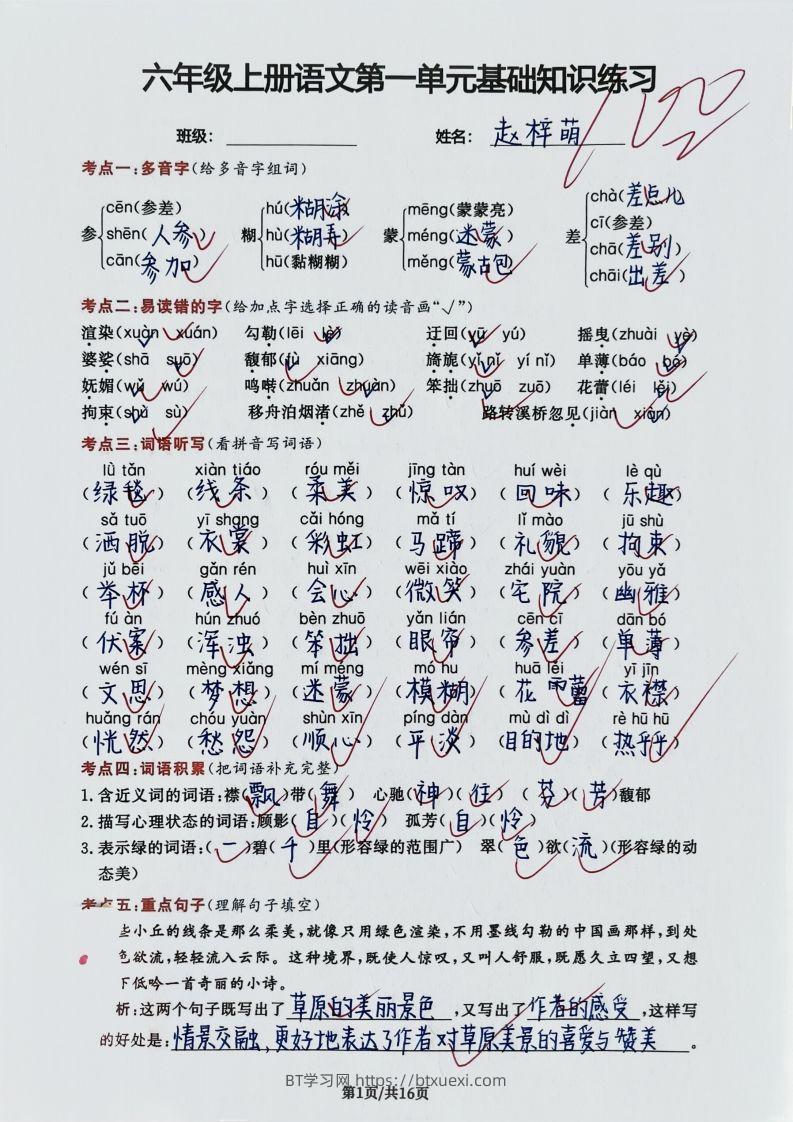 六年级上册语文第一单元基础知识练习
100
班级： 姓名：赵梓萌
考点一：多音字（给多音字组词）
参 cēn（参差） shēn（人参） cān（参加）
糊 hú（糊涂） hù（糊弄） hū（黏糊糊）
蒙 mēng（蒙蒙亮） méng（迷蒙） měng（蒙古包）
差 chà（差点儿） cī（参差） chā（差别） chāi（出差）
考点二：易读错的字（给加点字选择正确的读音画“√”）
渲染（xuàn xuán） 勾勒（lēi lè） 迂回（yū yú） 摇曳（zhuài yè）
婆娑（shā suō） 馥郁（fù xiāng） 旖旎（yǐ nǐ yí nǐ） 单薄（báo bó）
妩媚（wǔ wú） 鸣啭（zhuǎn zhuàn） 笨拙（zhuō zuō） 花蕾（léi lěi）
拘束（shù sù） 移舟泊烟渚（zhě zhǔ） 路转溪桥忽见（jiàn xiàn）
考点三：词语听写（看拼音写词语）
lǜ tǎn xiàn tiáo róu měi jīng tàn huí wèi lè qù
（绿毯）（线条）（柔美）（惊叹）（回味）（乐趣）
sǎ tuō yī shang cǎi hóng mǎ tí lǐ mào jū shù
（洒脱）（衣裳）（彩虹）（马蹄）（礼貌）（拘束）
jǔ bēi gǎn rén huì xīn wēi xiào zhái yuàn yōu yǎ
（举杯）（感人）（会心）（微笑）（宅院）（幽雅）
fú àn hún zhuó bèn zhuō yǎn lián cēn cī dān bó
（伏案）（浑浊）（笨拙）（眼帘）（参差）（单薄）
wén sī mèng xiǎng mí méng mó hu huā lěi yī jīn
（文思）（梦想）（迷蒙）（模糊）（花蕾）（衣襟）
huǎng rán chóu yuàn shùn xīn píng dàn mù dì dì rè hū hū
（恍然）（愁怨）（顺心）（平淡）（目的地）（热乎乎）
考点四：词语积累（把词语补充完整）
1. 含近义词的词语：襟（飘）带（舞） 心驰（神）（往） （芬）（芳）馥郁
2. 描写心理状态的词语：顾影（自）（怜） 孤芳（自）（怜）
3. 表示绿的词语：（一）碧（千）里（形容绿的范围广） 翠（色）欲（流）（形容绿的动
态美）
考点五：重点句子（理解句子填空）
些小丘的线条是那么柔美，就像只用绿色渲染，不用墨线勾勒的中国画那样，到处
色欲流，轻轻流入云际。这种境界，既使人惊叹，又叫人舒服，既愿久立四望，又想
下低吟一首奇丽的小诗。
析：这两个句子既写出了草原的美丽景色，又写出了作者的感受，这样写
的好处是：情景交融，更好地表达了作者对草原美景的喜爱与赞美。
BT学习网 https://btxuexi.com
第1页/共16页